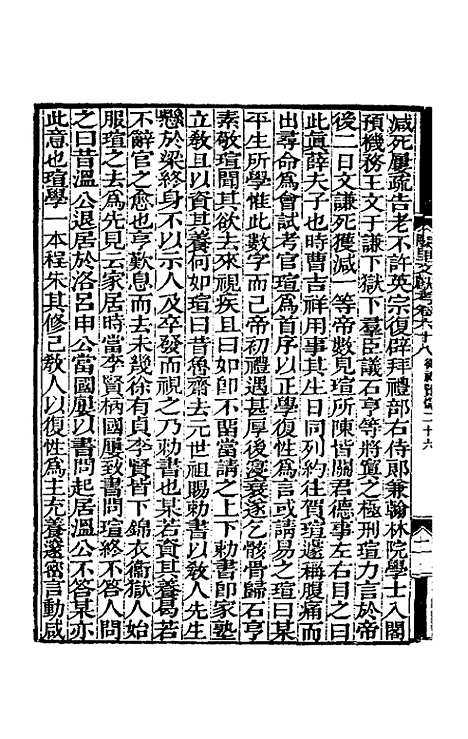 減死屢疏告老不許英宗復辟拜禮部右侍郎兼翰林院學士入閣
預機務王文于謙下獄下羣臣議石亨等將寘之極刑瑄力言於帝
後二日文謙死獲減一等帝數見瑄所陳皆關君德事左右目之曰
此眞薛夫子也時曹吉祥用事其生日同列約往賀瑄遽稱腹痛而
出尋命爲會試考官瑄爲首序以正學復性爲言或請易之瑄曰某
平生所學惟此數字而已帝初禮遇甚厚後寖衰遂乞骸骨歸石亨
素敬瑄聞其欲去來視疾且曰如卽不畱當請之上下勅書卽家塾
立敎且以資其養何如瑄曰昔魯齋去元世祖賜勅書以敎人先生
懸於梁終身不以示人及卒發而視之乃勅書也某若資其養曷若
不辭官之愈也亨歎息而去未幾徐有貞李賢皆下錦衣衞獄人始
服瑄之去爲先見云家居時當李賢柄國屢致書問瑄終不答人問
之曰昔溫公退居於洛呂申公當國屢以書問起居溫公不答某亦
此意也瑄學一本程朱其修己敎人以復性爲主充養邃密言動咸